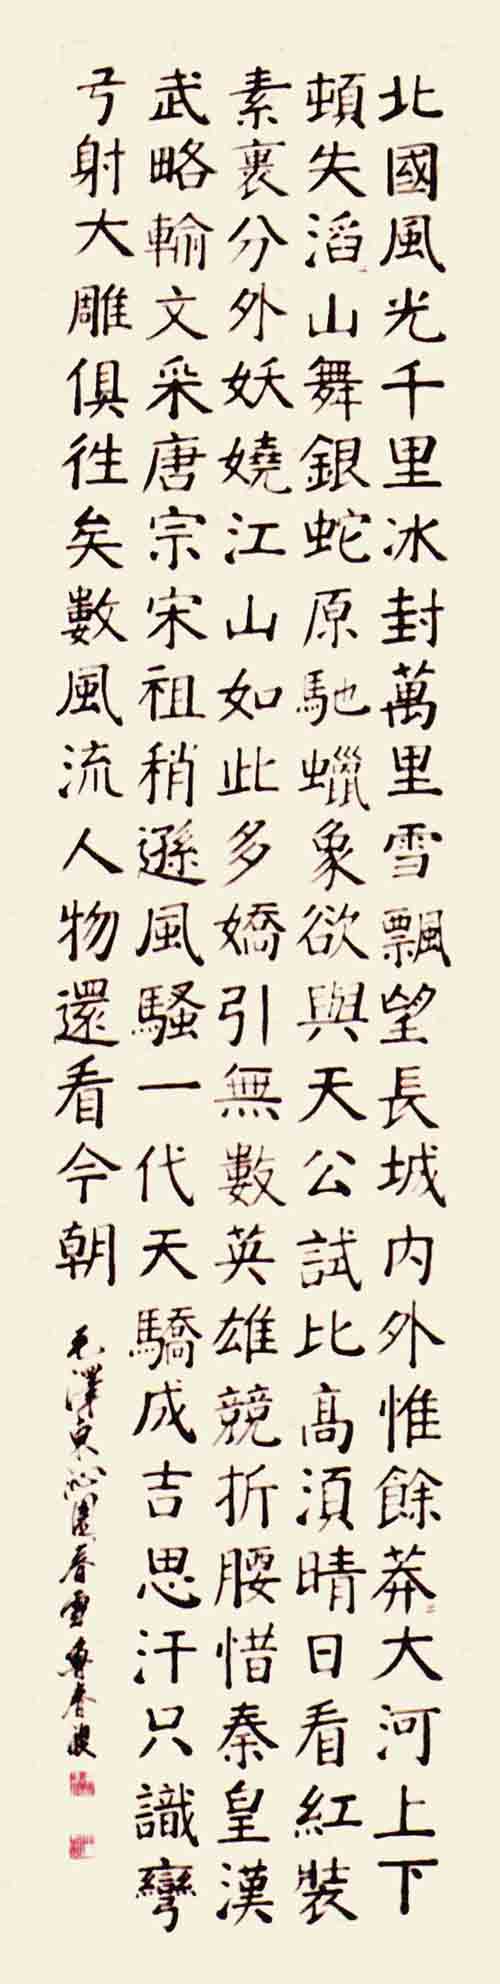 北國風光千里冰封萬里雪飄望長城内外惟餘莽〻大河上下
頓失滔〻山舞銀蛇原馳蠟象欲與天公試比高須晴日看紅裝
素裹分外妖嬈江山如此多嬌引無數英雄競折腰惜秦皇漢
武略輸文采唐宗宋祖稍遜風騷一代天驕成吉思汗只識彎
弓射大雕俱往矣數風流人物還看今朝
毛澤東沁園春雪魯春波